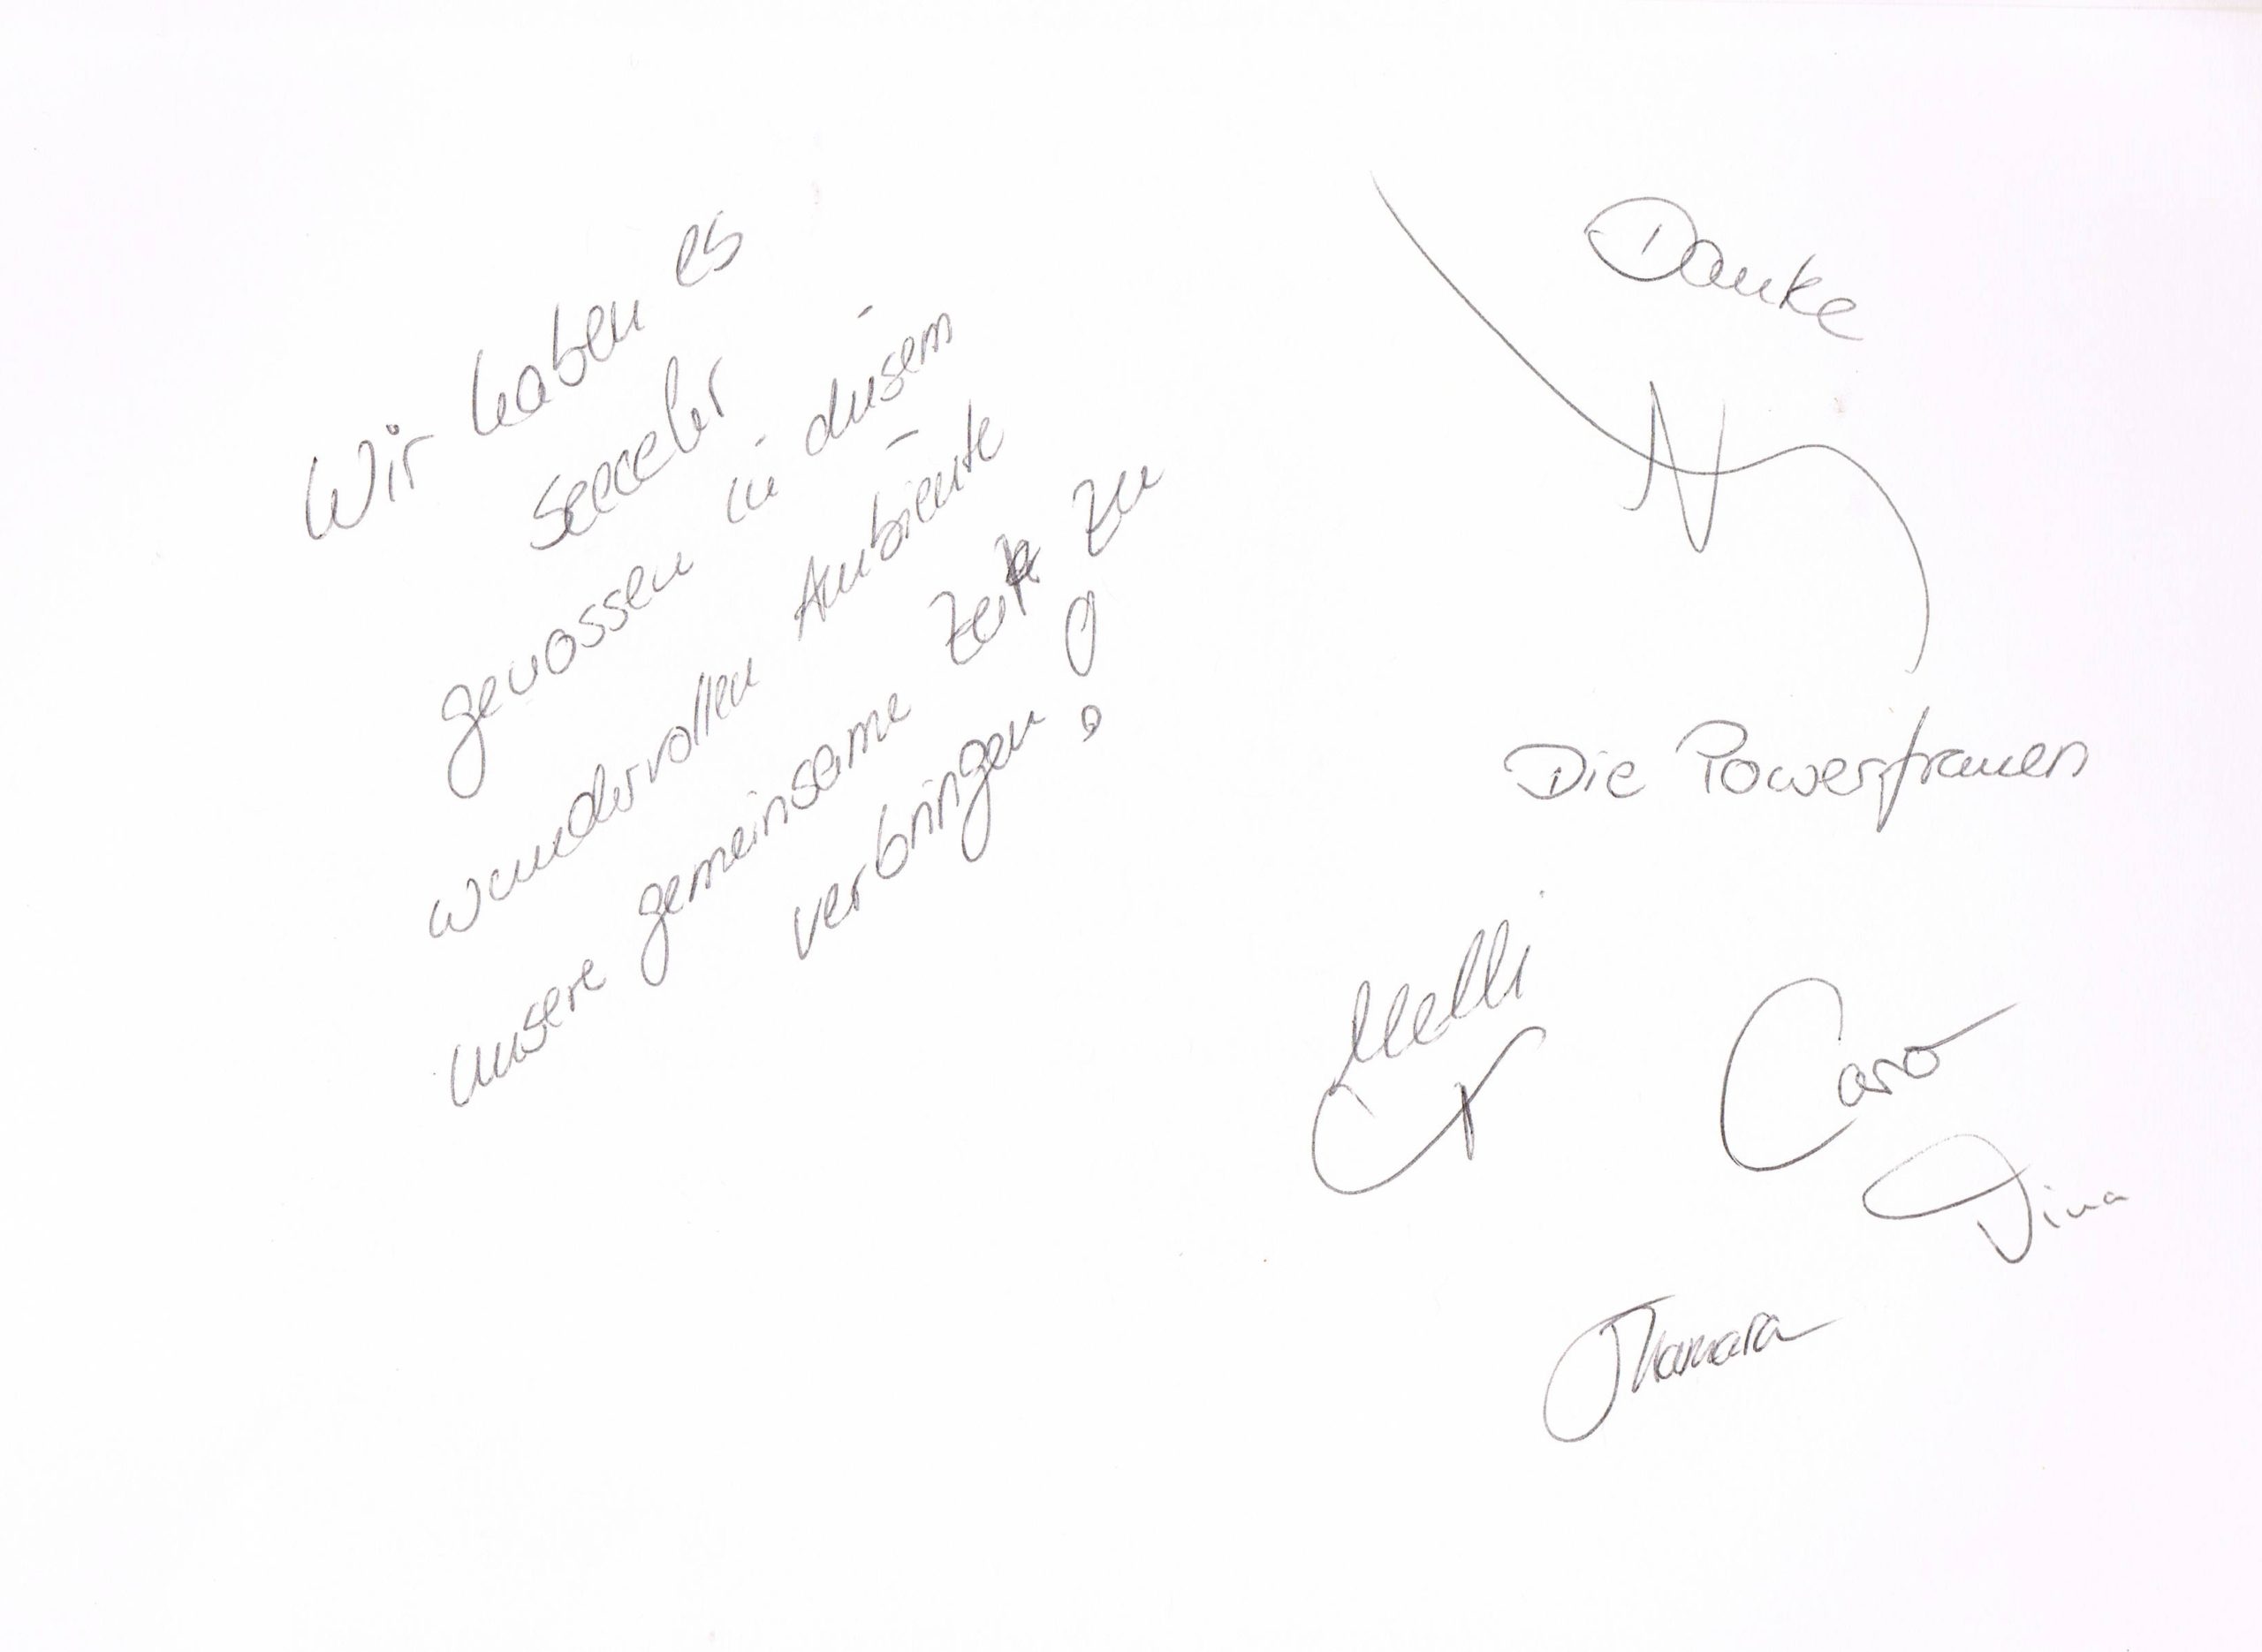 Wir haben es
sehr
genossen in diesem
wundervollen Ambiente
unsere gemeinsame Zeit zu
verbringen!
Danke
Die Powerfrauen
Melli
Caro
Tina
Tamara